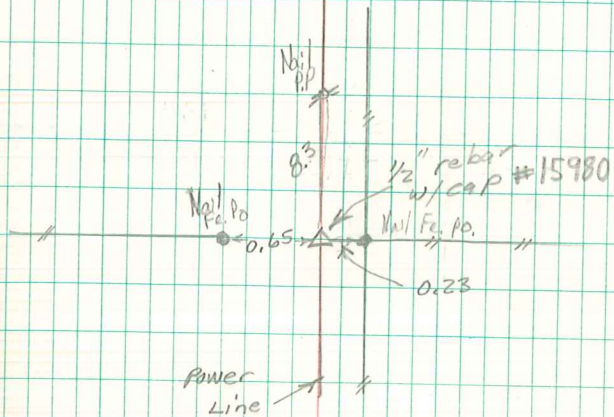 Nail
P.P
8.3
1/2" rebar
w/ cap #15980
Nail
Fc. Po
Nail Fc. po.
0.65
0.23
Power
Line